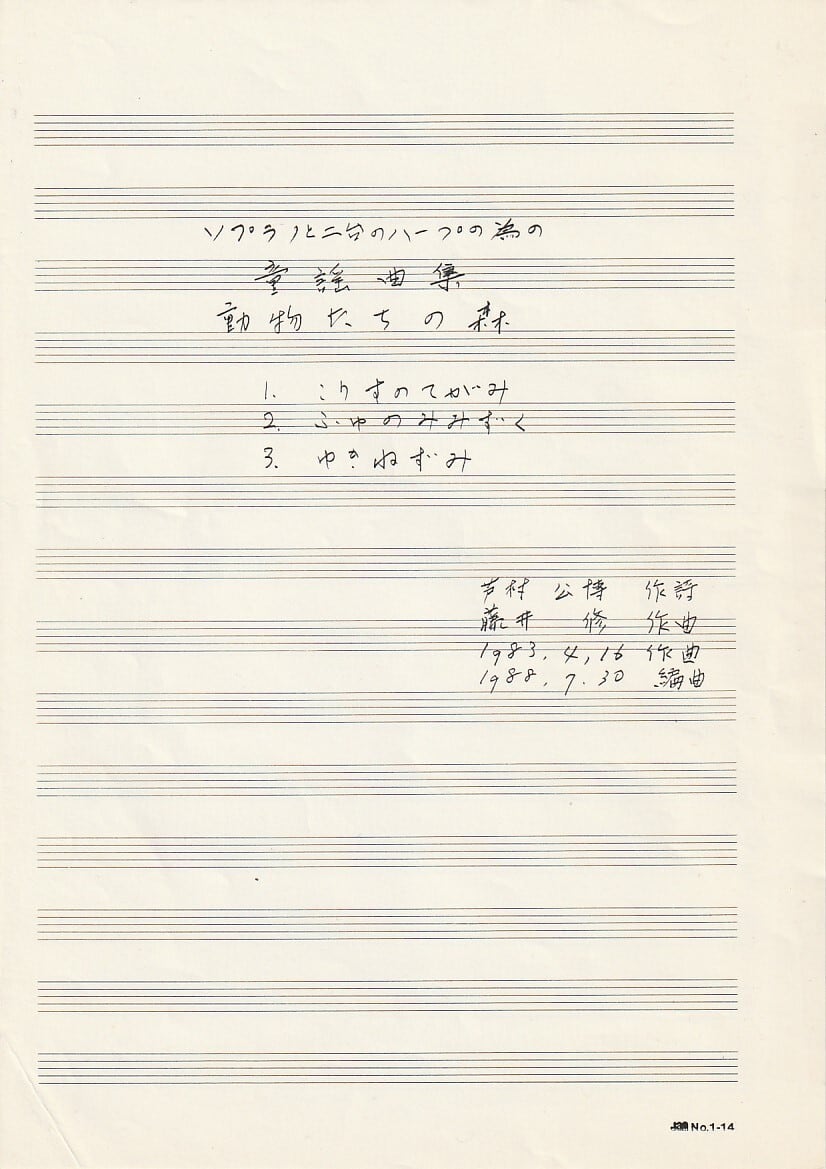 ソプラノと二台のハープの為の
童謡曲集
動物たちの森
1. こりすのてがみ
2. ふゆのみみずく
3. ゆきねずみ
芦村 公博 作詩
藤井 修 作曲
1983.4,16 作曲
1988.7.30 編曲
No.1-14